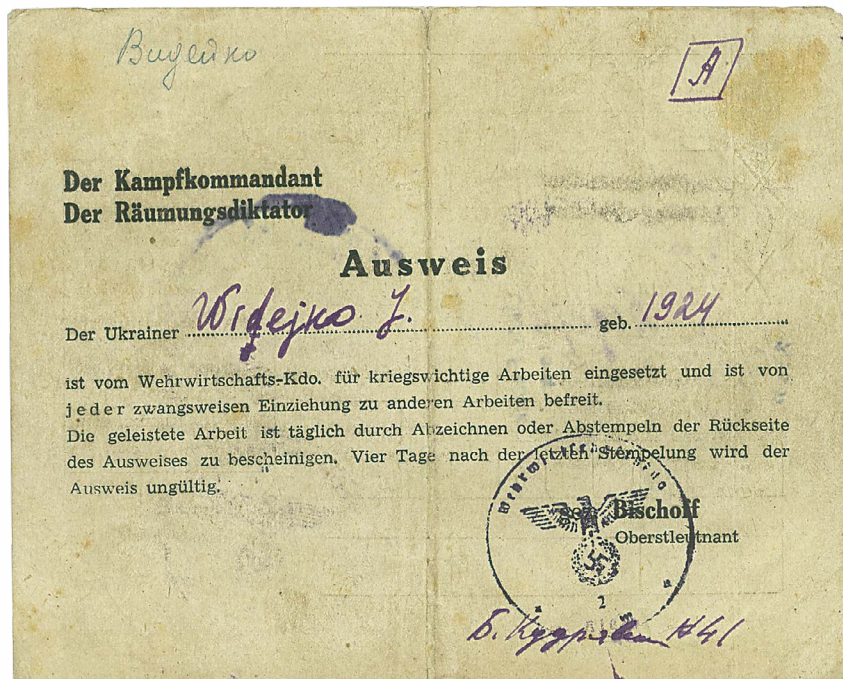 Видейко
A
Der Kampfkommandant
Der Räumungsdiktator
Ausweis
Der Ukrainer Widejko J. geb. 1924
ist vom Wehrwirtschafts-Kdo. für kriegswichtige Arbeiten eingesetzt und ist von
jeder zwangsweisen Einziehung zu anderen Arbeiten befreit.
Die geleistete Arbeit ist täglich durch Abzeichnen oder Abstempeln der Rückseite
des Ausweises zu bescheinigen. Vier Tage nach der letzten Stempelung wird der
Ausweis ungültig.
gez. Bischoff
Oberstleutnant
2